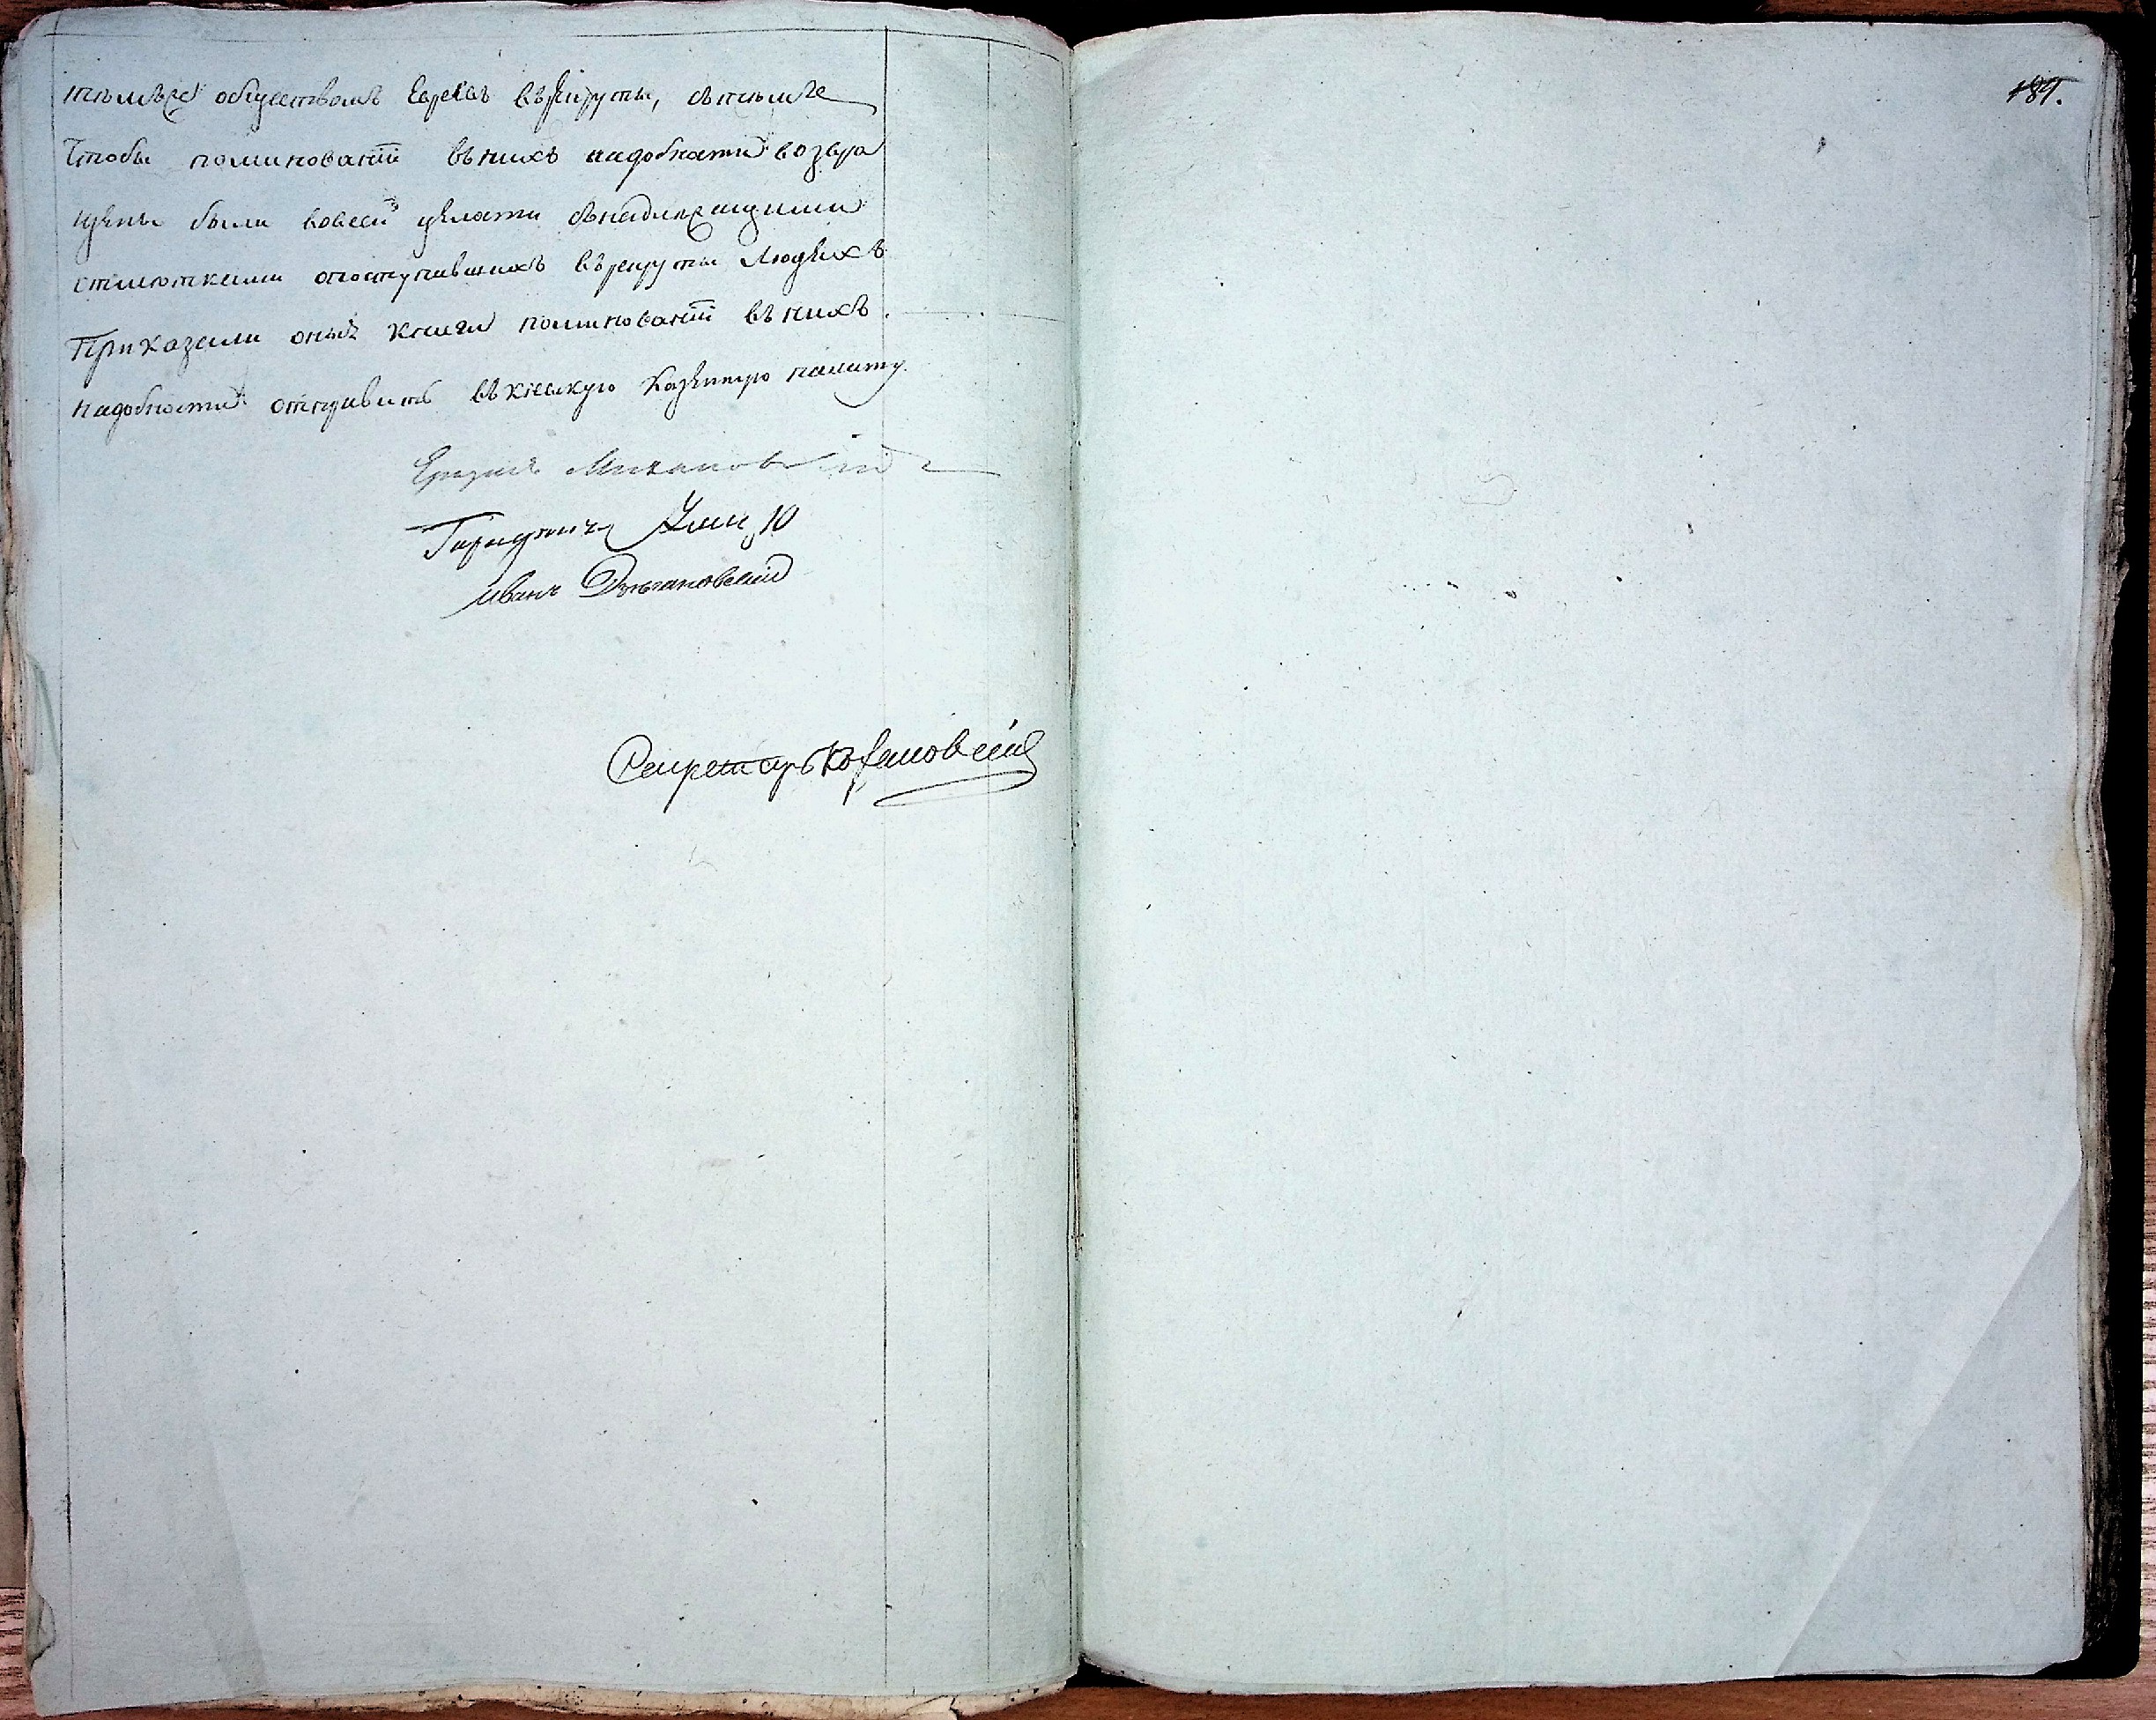 обществомъ Евреевъ въ рекруты, съ тѣмъ же
чтобы по миновании въ нихъ надобности возвра
щены были во всей целости съ надлежащими
отметками о поступившихъ въ рекруты людяхъ
Приказали оные книги по миновании въ нихъ
надобности отправить въ Киевскую Казенную палату.
Иванъ
Секретарь
184.